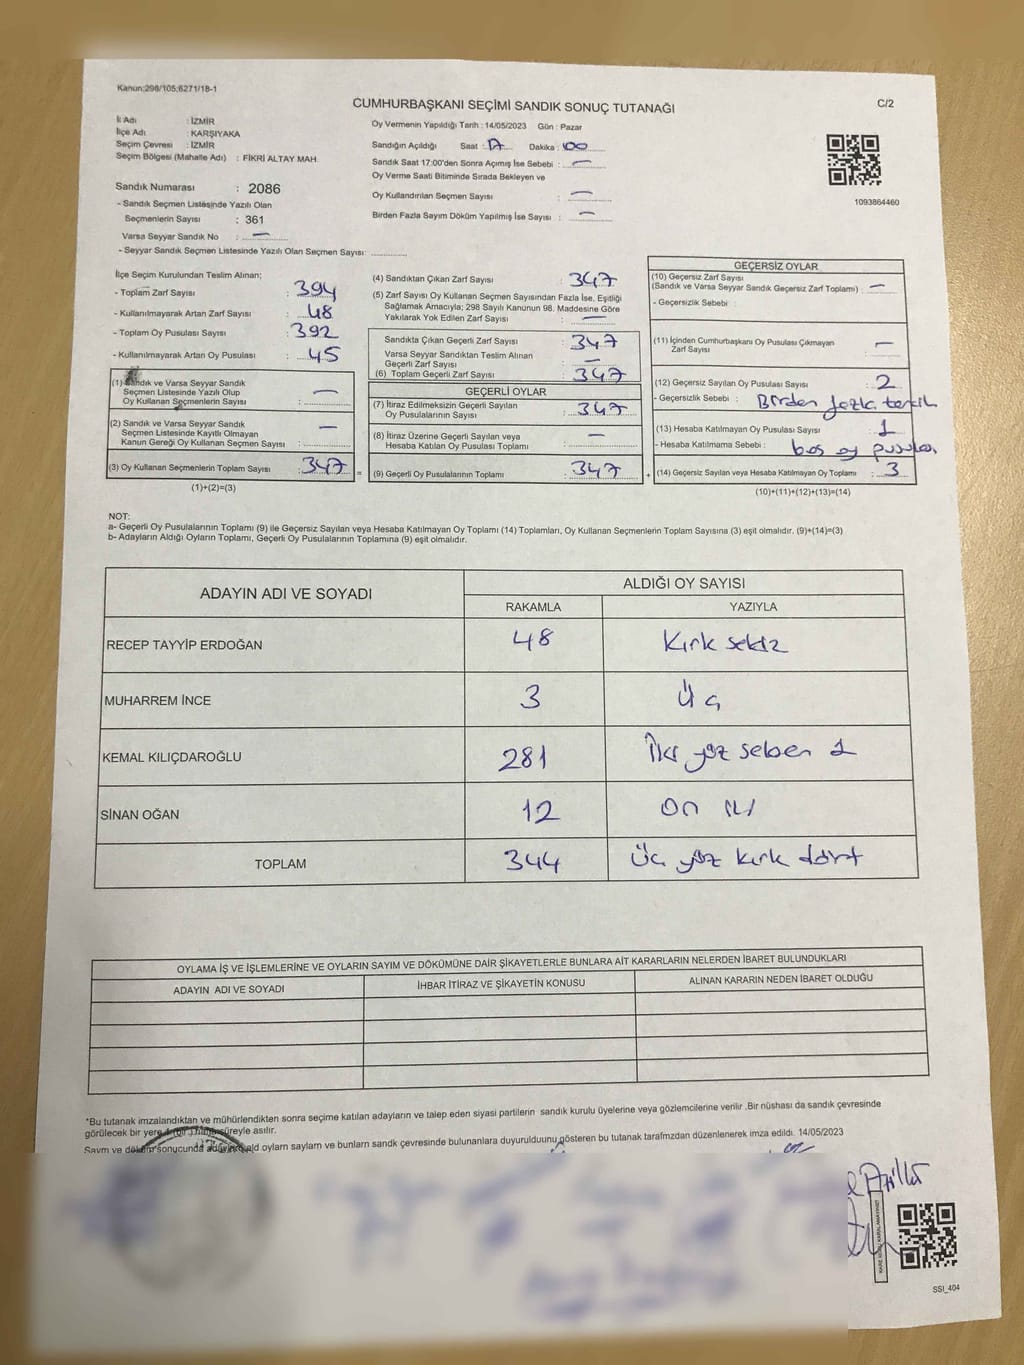 Kanun:298/105;6271/18-1
CUMHURBAŞKANI SEÇİMİ SANDIK SONUÇ TUTANAĞI
C/2
İl Adı : İZMİR
İlçe Adı : KARŞIYAKA
Seçim Çevresi : İZMİR
Seçim Bölgesi (Mahalle Adı) : FİKRİ ALTAY MAH.
Sandık Numarası : 2086
- Sandık Seçmen Listesinde Yazılı Olan
Seçmenlerin Sayısı : 361
Varsa Seyyar Sandık No : —
- Seyyar Sandık Seçmen Listesinde Yazılı Olan Seçmen Sayısı:
Oy Vermenin Yapıldığı Tarih : 14/05/2023 Gün : Pazar
Sandığın Açıldığı Saat : 17 Dakika : 00
Sandık Saat 17:00'den Sonra Açımış İse Sebebi : —
Oy Verme Saati Bitiminde Sırada Bekleyen ve
Oy Kullandırılan Seçmen Sayısı : —
Birden Fazla Sayım Döküm Yapılmış İse Sayısı : —
1093864460
İlçe Seçim Kurulundan Teslim Alınan;
- Toplam Zarf Sayısı : 394
- Kullanılmayarak Artan Zarf Sayısı : 48
- Toplam Oy Pusulası Sayısı : 392
- Kullanılmayarak Artan Oy Pusulası : 45
(1) Sandık ve Varsa Seyyar Sandık
Seçmen Listesinde Yazılı Olup
Oy Kullanan Seçmenlerin Sayısı : —
(2) Sandık ve Varsa Seyyar Sandık
Seçmen Listesinde Kayıtlı Olmayan
Kanun Gereği Oy Kullanan Seçmen Sayısı : —
(3) Oy Kullanan Seçmenlerin Toplam Sayısı : 347
(1)+(2)=(3)
(4) Sandıktan Çıkan Zarf Sayısı : 347
(5) Zarf Sayısı Oy Kullanan Seçmen Sayısından Fazla İse, Eşitliği
Sağlamak Amacıyla; 298 Sayılı Kanunun 98. Maddesine Göre
Yakılarak Yok Edilen Zarf Sayısı : —
Sandıkta Çıkan Geçerli Zarf Sayısı : 347
Varsa Seyyar Sandıktan Teslim Alınan
Geçerli Zarf Sayısı : —
(6) Toplam Geçerli Zarf Sayısı : 347
GEÇERLİ OYLAR
(7) İtiraz Edilmeksizin Geçerli Sayılan
Oy Pusulalarının Sayısı : 347
(8) İtiraz Üzerine Geçerli Sayılan veya
Hesaba Katılan Oy Pusulası Toplamı : —
(9) Geçerli Oy Pusulalarının Toplamı : 347
GEÇERSİZ OYLAR
(10) Geçersiz Zarf Sayısı
(Sandık ve Varsa Seyyar Sandık Geçersiz Zarf Toplamı) : —
- Geçersizlik Sebebi :
(11) İçinden Cumhurbaşkanı Oy Pusulası Çıkmayan
Zarf Sayısı : —
(12) Geçersiz Sayılan Oy Pusulası Sayısı : 2
- Geçersizlik Sebebi : Birden fazla tercih
(13) Hesaba Katılmayan Oy Pusulası Sayısı : 1
- Hesaba Katılmama Sebebi : boş oy pusulası
(14) Geçersiz Sayılan veya Hesaba Katılmayan Oy Toplamı : 3
(10)+(11)+(12)+(13)=(14)
NOT:
a- Geçerli Oy Pusulalarının Toplamı (9) ile Geçersiz Sayılan veya Hesaba Katılmayan Oy Toplamı (14) Toplamları, Oy Kullanan Seçmenlerin Toplam Sayısına (3) eşit olmalıdır. (9)+(14)=(3)
b- Adayların Aldığı Oyların Toplamı, Geçerli Oy Pusulalarının Toplamına (9) eşit olmalıdır.
ADAYIN ADI VE SOYADI
ALDIĞI OY SAYISI
RAKAMLA YAZIYLA
RECEP TAYYİP ERDOĞAN 48 Kırk sekiz
MUHARREM İNCE 3 Üç
KEMAL KILIÇDAROĞLU 281 İki yüz seksen 1
SİNAN OĞAN 12 On iki
TOPLAM 344 Üç yüz kırk dört
OYLAMA İŞ VE İŞLEMLERİNE VE OYLARIN SAYIM VE DÖKÜMÜNE DAİR ŞİKAYETLERLE BUNLARA AİT KARARLARIN NELERDEN İBARET BULUNDUKLARI
ADAYIN ADI VE SOYADI İHBAR İTİRAZ VE ŞİKAYETİN KONUSU ALINAN KARARIN NEDEN İBARET OLDUĞU
*Bu tutanak imzalandıktan ve mühürlendikten sonra seçime katılan adayların ve talep eden siyasi partilerin sandık kurulu üyelerine veya gözlemcilerine verilir .Bir nüshası da sandık çevresinde
görülecek bir yere süreyle asılır.
Sayım ve döküm sonucunda ald oylarn saylam ve bunlarn sandk çevresinde bulunanlara duyurulduunu gösteren bu tutanak tarafmzdan düzenlenerek imza edildi. 14/05/2023
KARE KODU KARALAMAYINIZ!
SSI_404